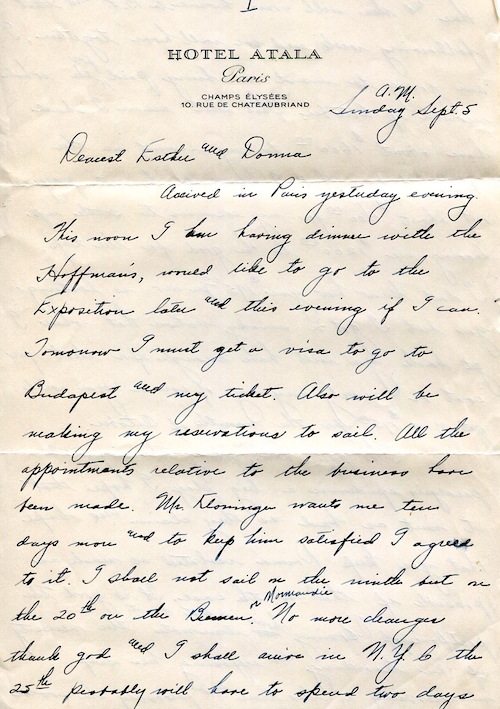 1
HOTEL ATALA
Paris
CHAMPS ÉLYSÉES
10. RUE DE CHATEAUBRIAND
A.M.
Sunday Sept. 5
Dearest Esther and Donna
Arrived in Paris yesterday evening.
This noon I am having dinner with the
Hoffman's, would like to go to the
Exposition later and this evening if I can.
Tomorrow I must get a visa to go to
Budapest and my ticket. Also will be
making my reservations to sail. All the
appointments relative to the business have
been made. Mr. Kloninger wants me ten
days more and to keep him satisfied I agreed
to it. I shall not sail on the ninth but on
the 20th on the Bremen or Normandie. No more changes
thank god and I shall arrive in N.Y.C the
25th probably will have to spend two days